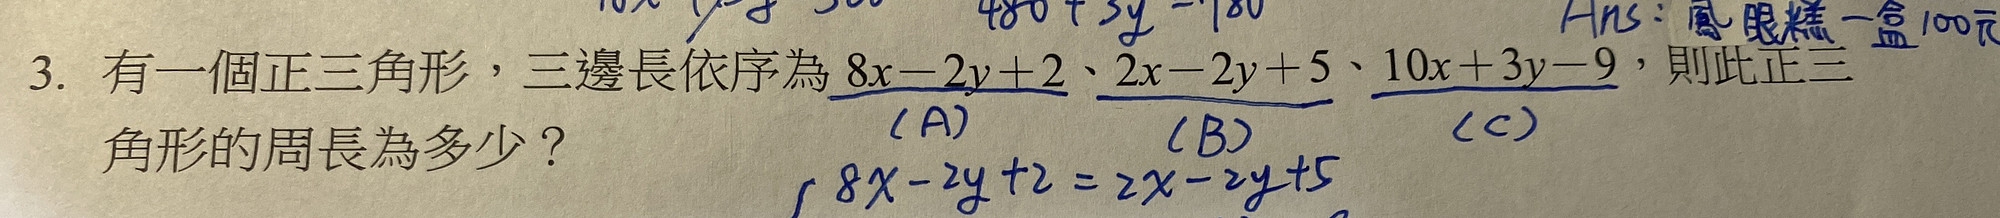 480+3y=780
Ans: 鳳眼糕一盒100元
3. 有一個正三角形，三邊長依序為 8x－2y＋2、2x－2y＋5、10x＋3y－9，則此正三
(A) (B) (C)
角形的周長為多少？
8x-2y+2=2x-2y+5